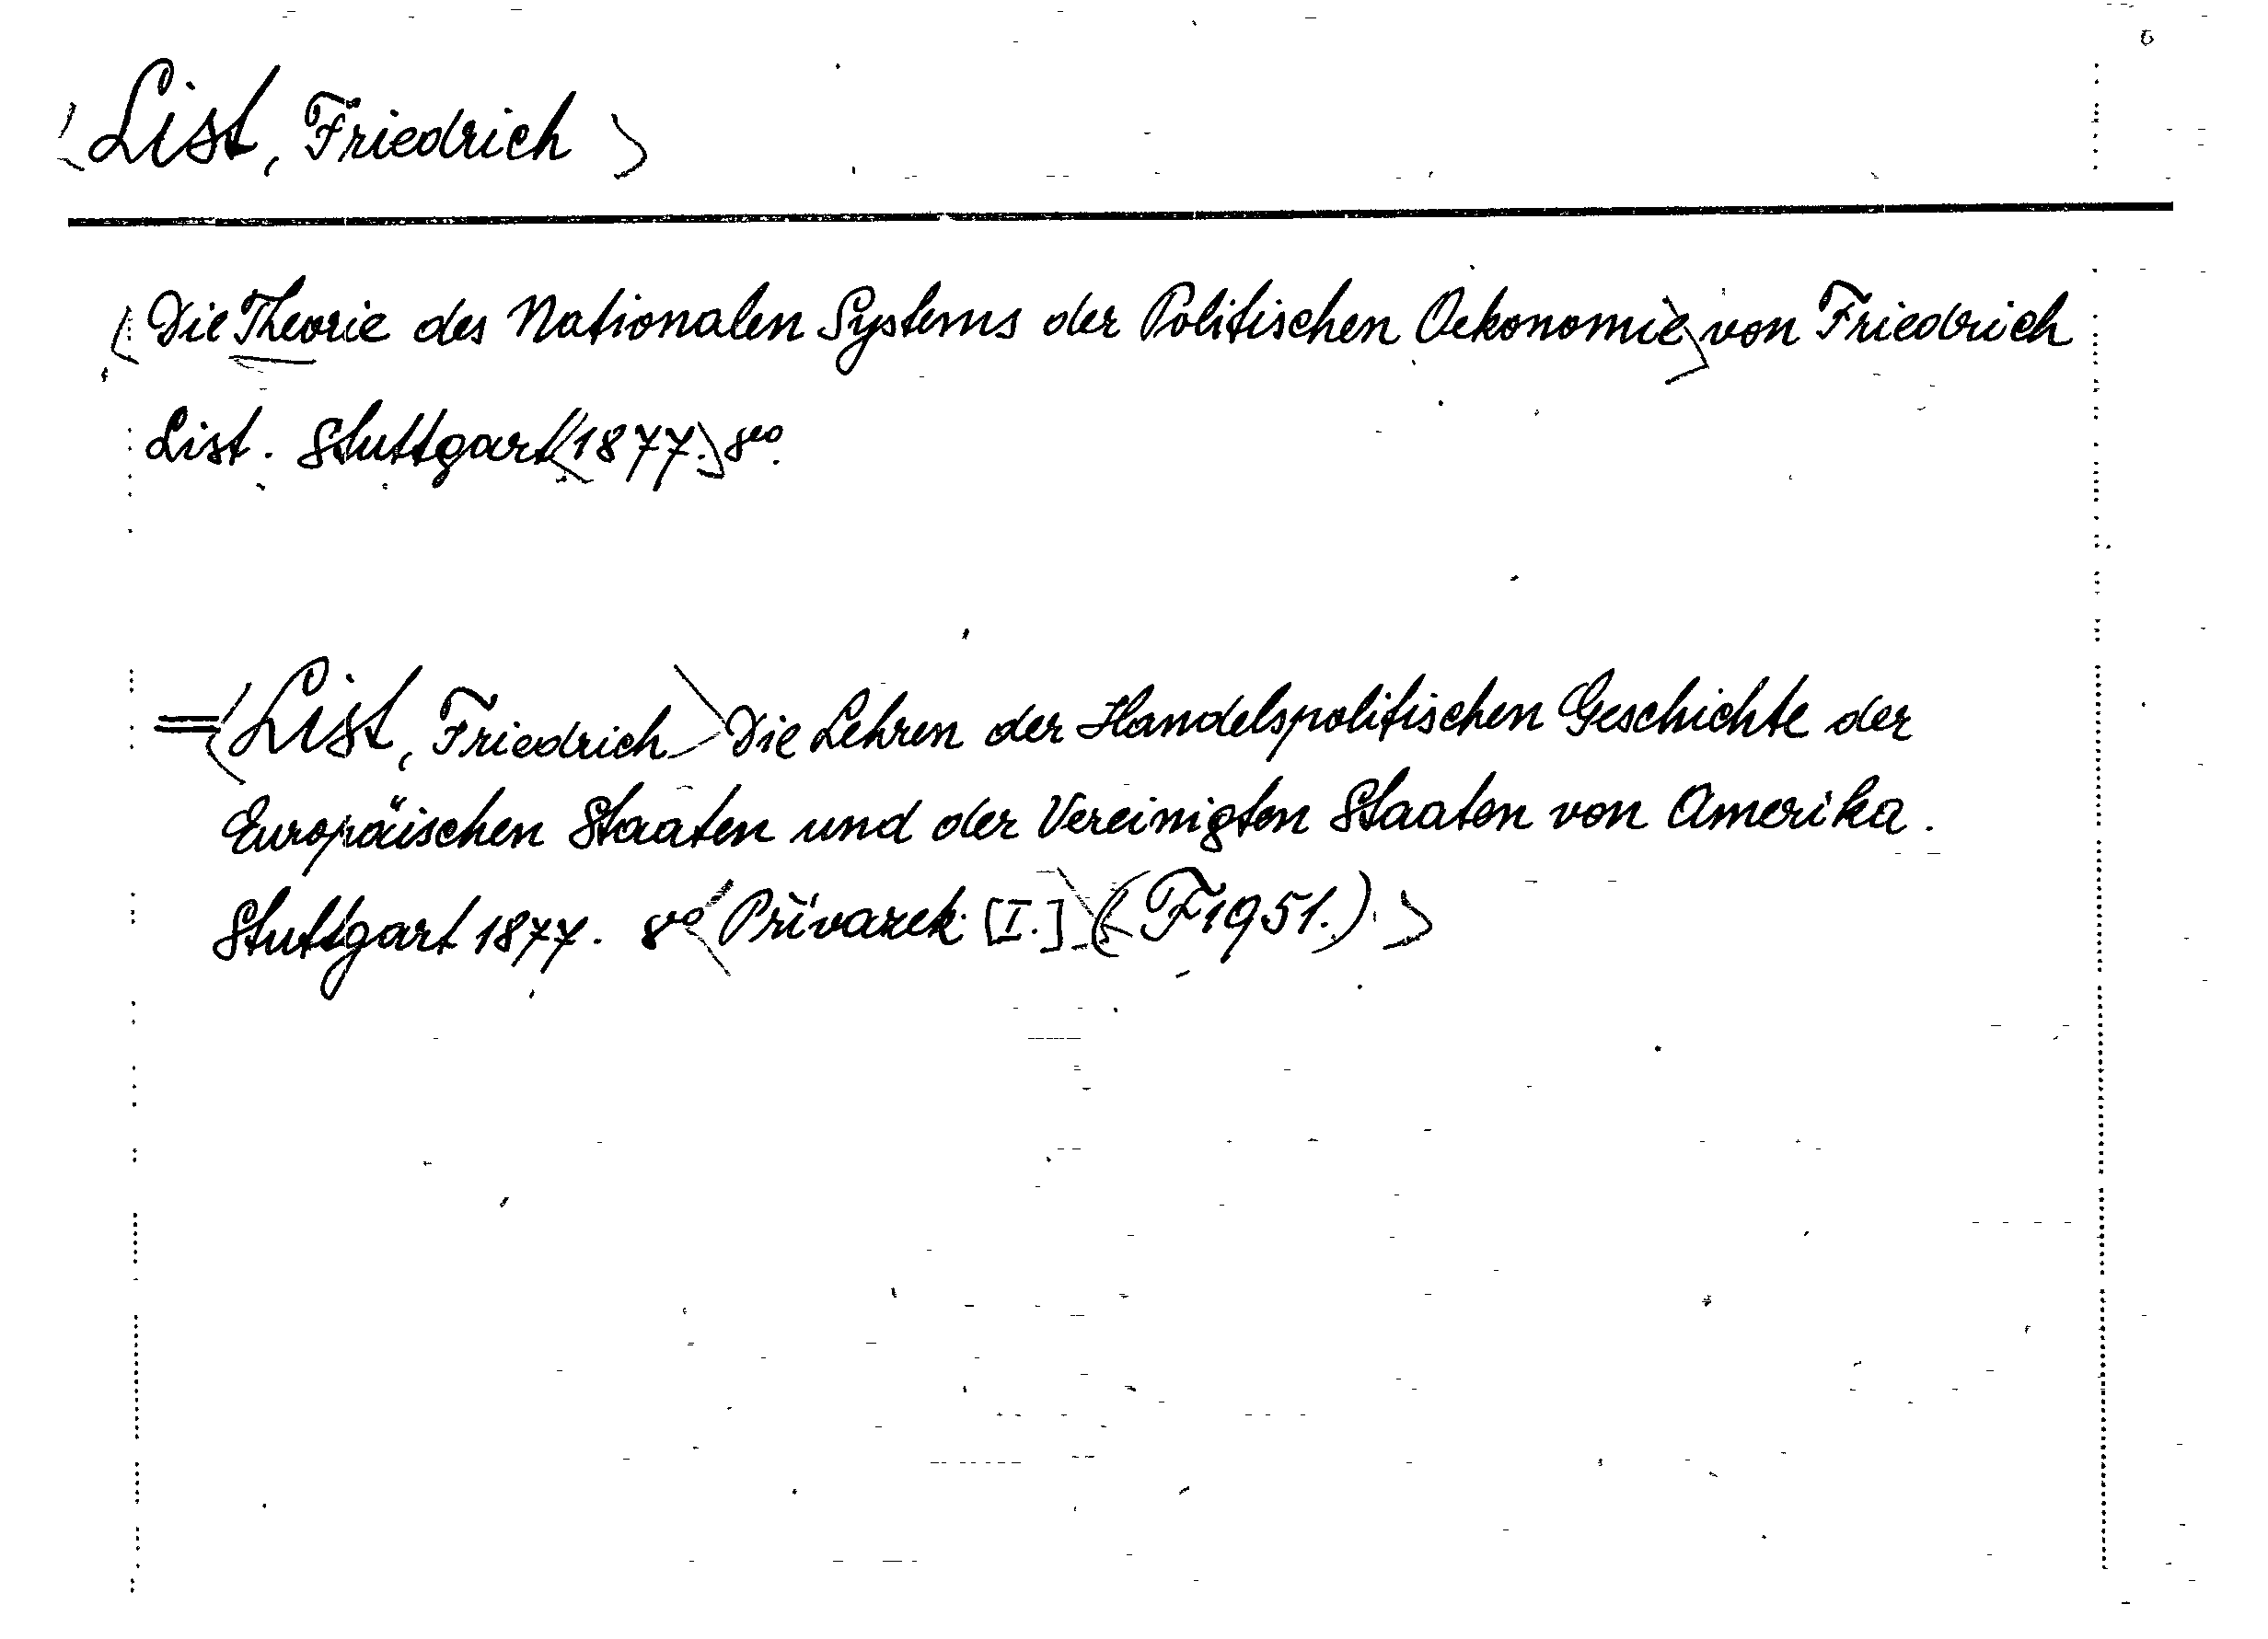 <List, Friedrich>
<Die Theorie des Nationalen Systems der Politischen Oekonomie> von Friedrich
List. Stuttgart <1877.> 8vo.
=<List, Friedrich> Die Lehren der Handelspolitischen Geschichte der
Europäischen Staaten und der Vereinigten Staaten von Amerika.
Stuttgart 1877. 8vo <Přívazek [I.]> <(F1951.).>